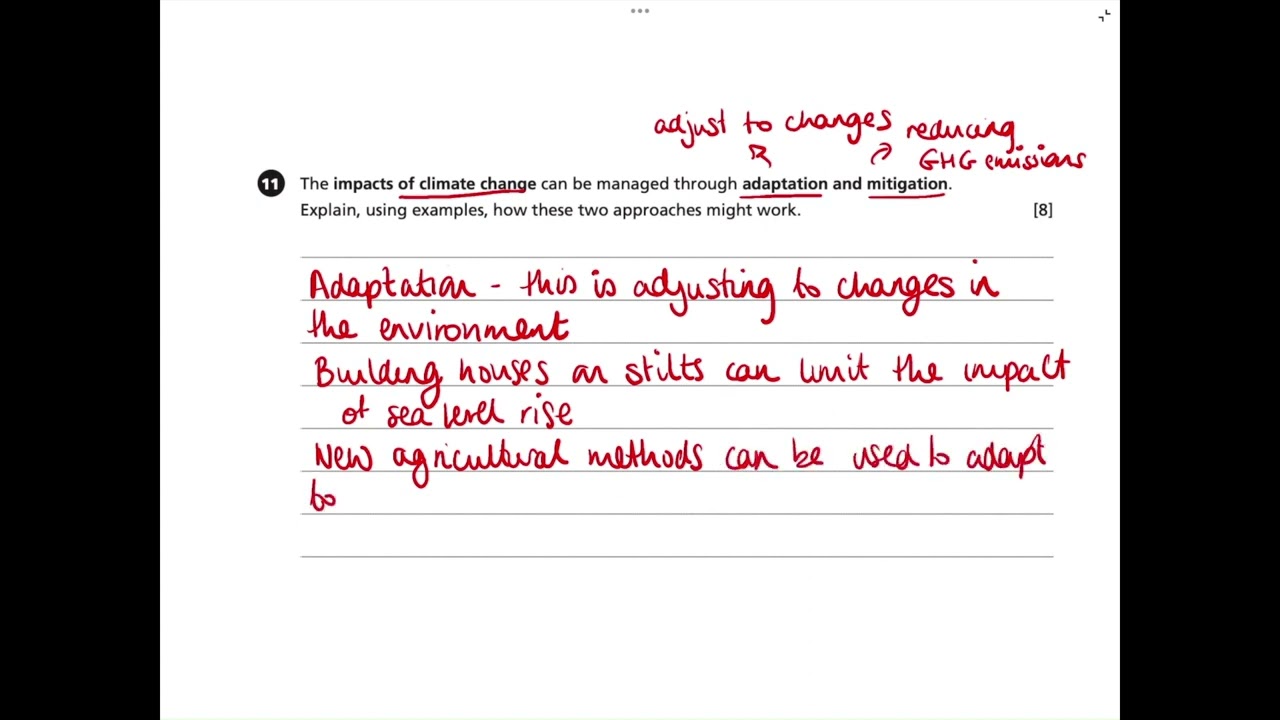 adjust to changes reducing
GHG emissions
11 The impacts of climate change can be managed through adaptation and mitigation.
Explain, using examples, how these two approaches might work. [8]
Adaptation - this is adjusting to changes in
the environment
Building houses on stilts can limit the impact
of sea level rise
New agricultural methods can be used to adapt
to